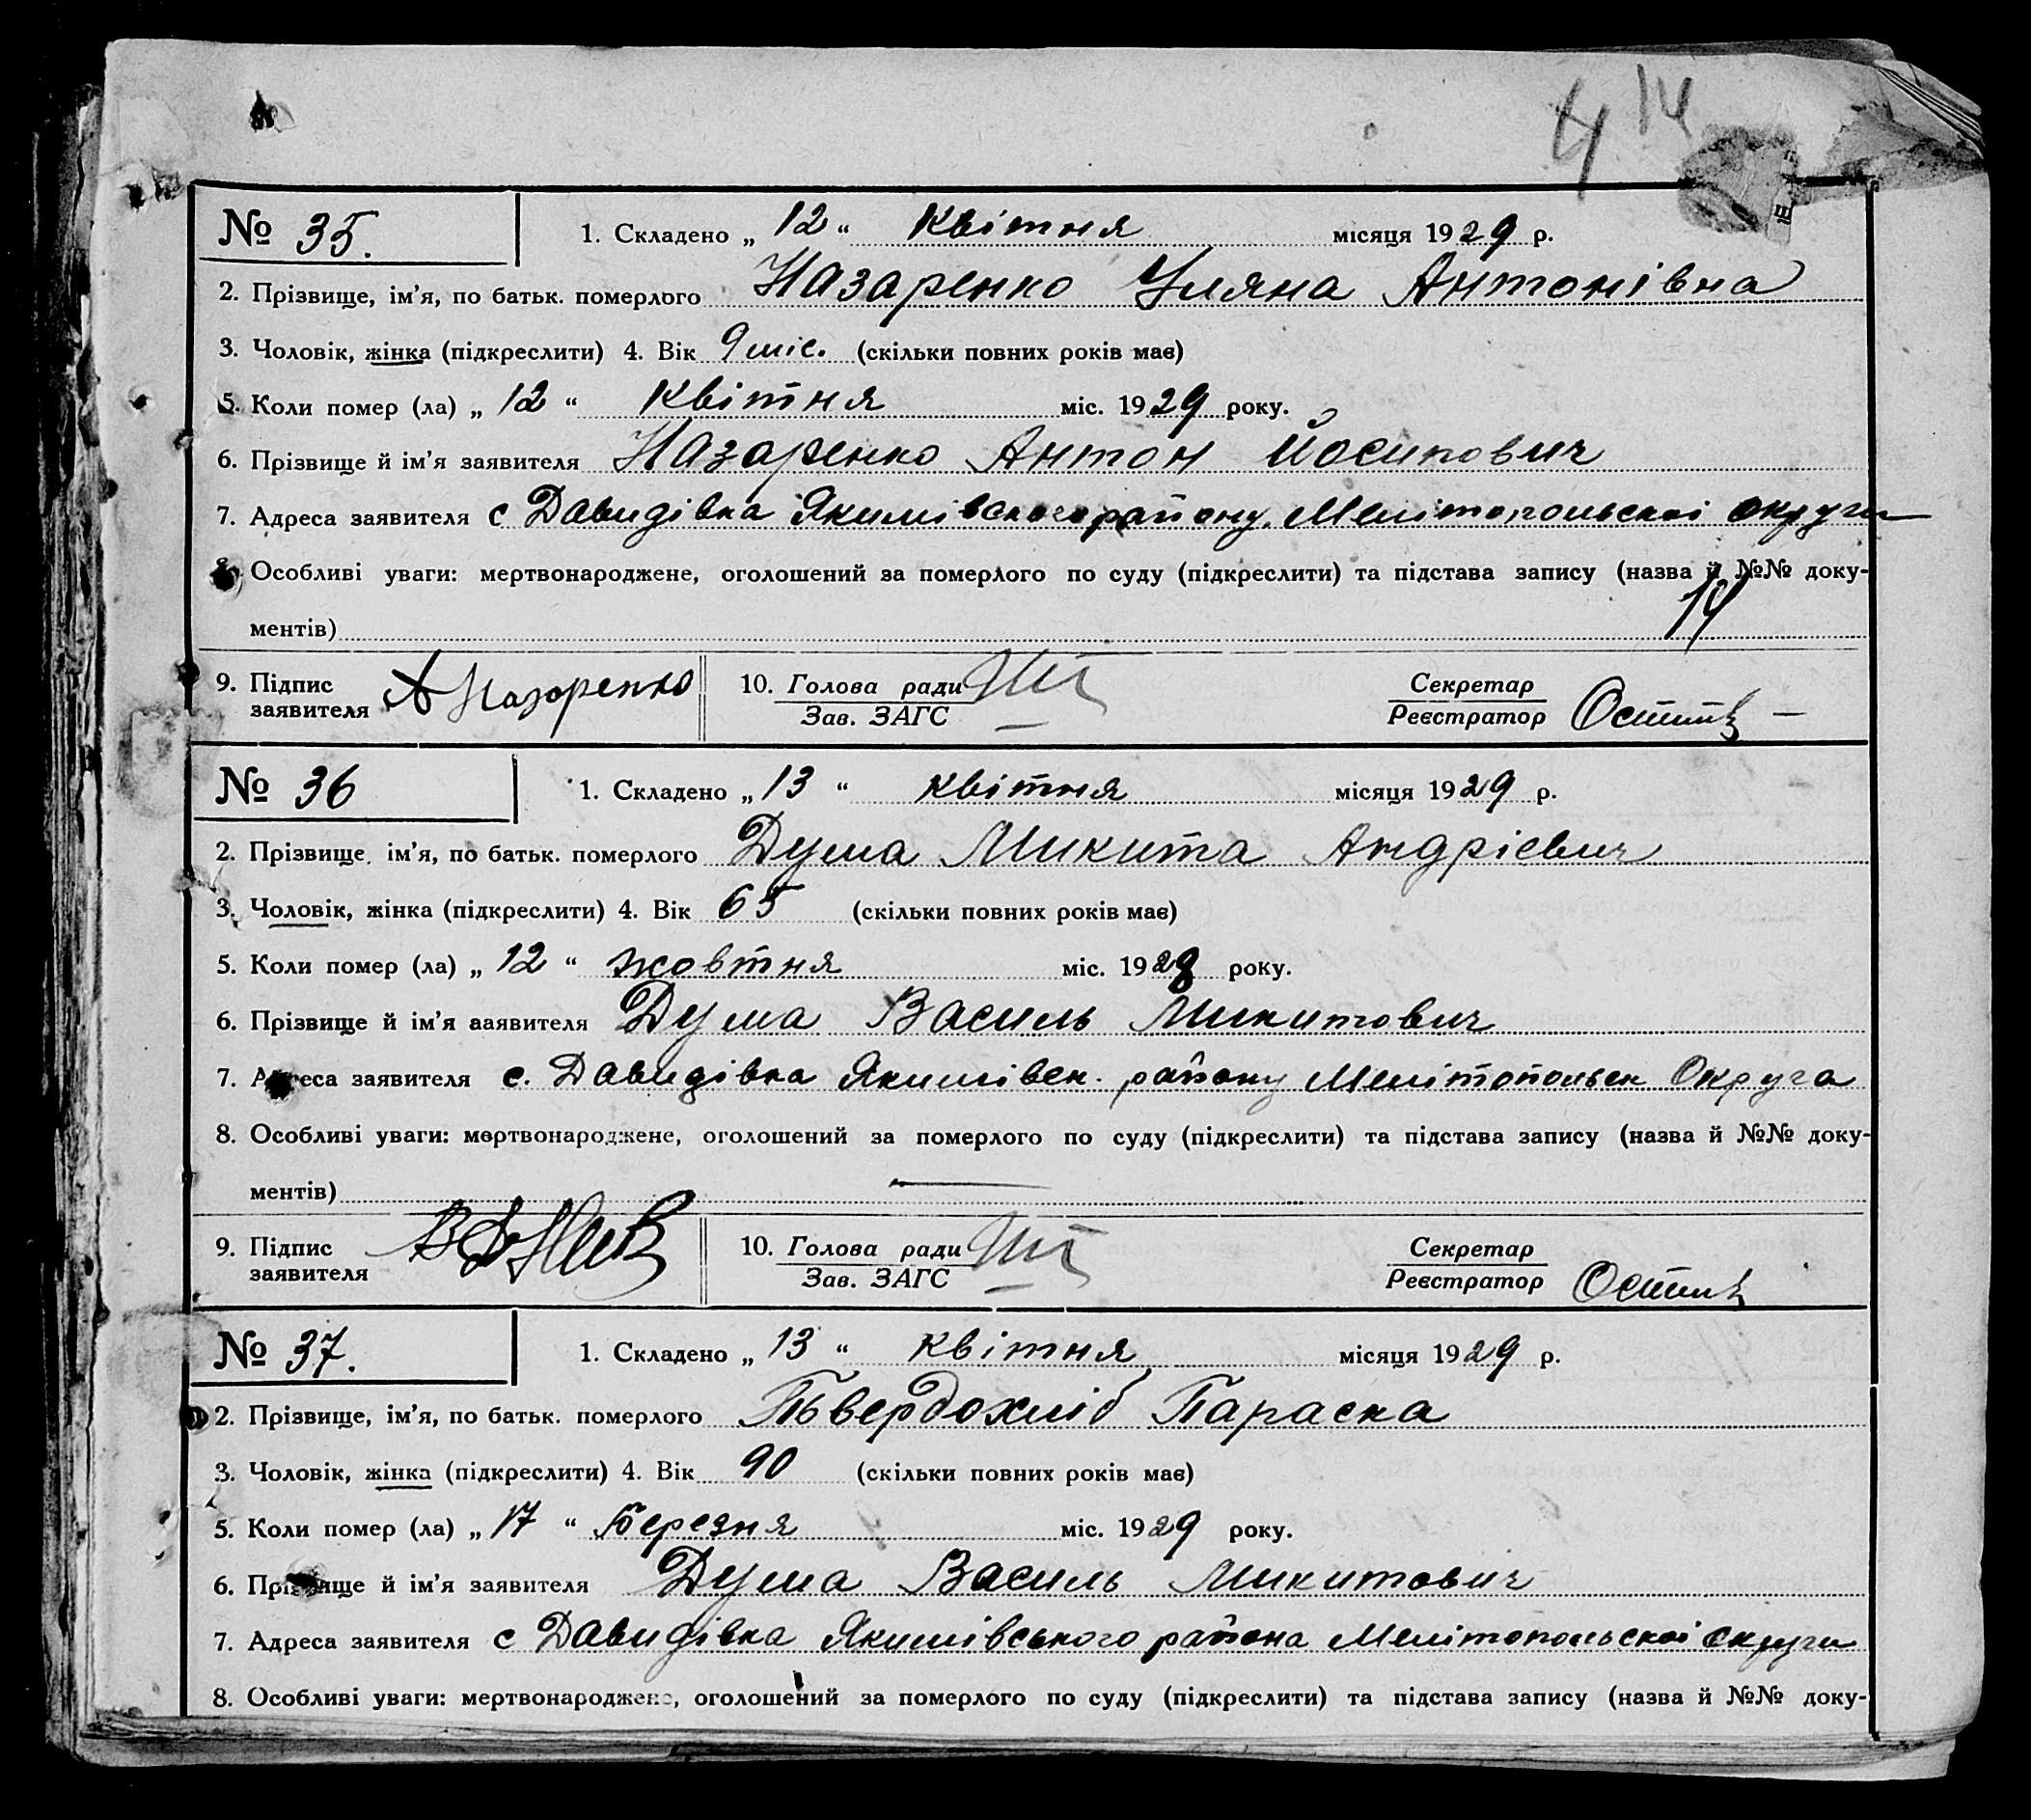 4 14
№ 35. 1. Складено „ 12 “ Квітня місяця 1929 р.
2. Прізвище, ім’я, по батьк. померлого Назаренко Уляна Антонівна
3. Чоловік, жінка (підкреслити) 4. Вік 9 міс. (скільки повних років має)
5. Коли помер (ла) „ 12 “ Квітня міс. 1929 року.
6. Прізвище й ім’я заявителя Назаренко Антон Йосипович
7. Адреса заявителя с Давидівка Якимівського району Мелітопольскоі округи
8. Особливі уваги: мертвонароджене, оголошений за померлого по суду (підкреслити) та підстава запису (назва й №№ доку-
14
ментів)
9. Підпис заявителя А Назаренко 10. Голова ради Секретар
Зав. ЗАГС Реєстратор
№ 36 1. Складено „ 13 “ квітня місяця 1929 р.
2. Прізвище, ім’я, по батьк. померлого Дума Микита Андрієвич
3. Чоловік, жінка (підкреслити) 4. Вік 65 (скільки повних років має)
5. Коли помер (ла) „ 12 “ жовтня міс. 1928 року.
6. Прізвище й ім’я заявителя Дума Василь Микитович
7. Адреса заявителя с. Давидівка Якимівск. району Мелітопольск Округа
8. Особливі уваги: мертвонароджене, оголошений за померлого по суду (підкреслити) та підстава запису (назва й №№ доку-
ментів)
9. Підпис заявителя 10. Голова ради Секретар
Зав. ЗАГС Реєстратор
№ 37. 1. Складено „ 13 “ квітня місяця 1929 р.
2. Прізвище, ім’я, по батьк. померлого Тьвердохліб Параска
3. Чоловік, жінка (підкреслити) 4. Вік 90 (скільки повних років має)
5. Коли помер (ла) „ 17 “ Березня міс. 1929 року.
6. Прізвище й ім’я заявителя Дума Василь Микитович
7. Адреса заявителя с Давидівка Якимівського района Мелітопольскоі округи
8. Особливі уваги: мертвонароджене, оголошений за померлого по суду (підкреслити) та підстава запису (назва й №№ доку-